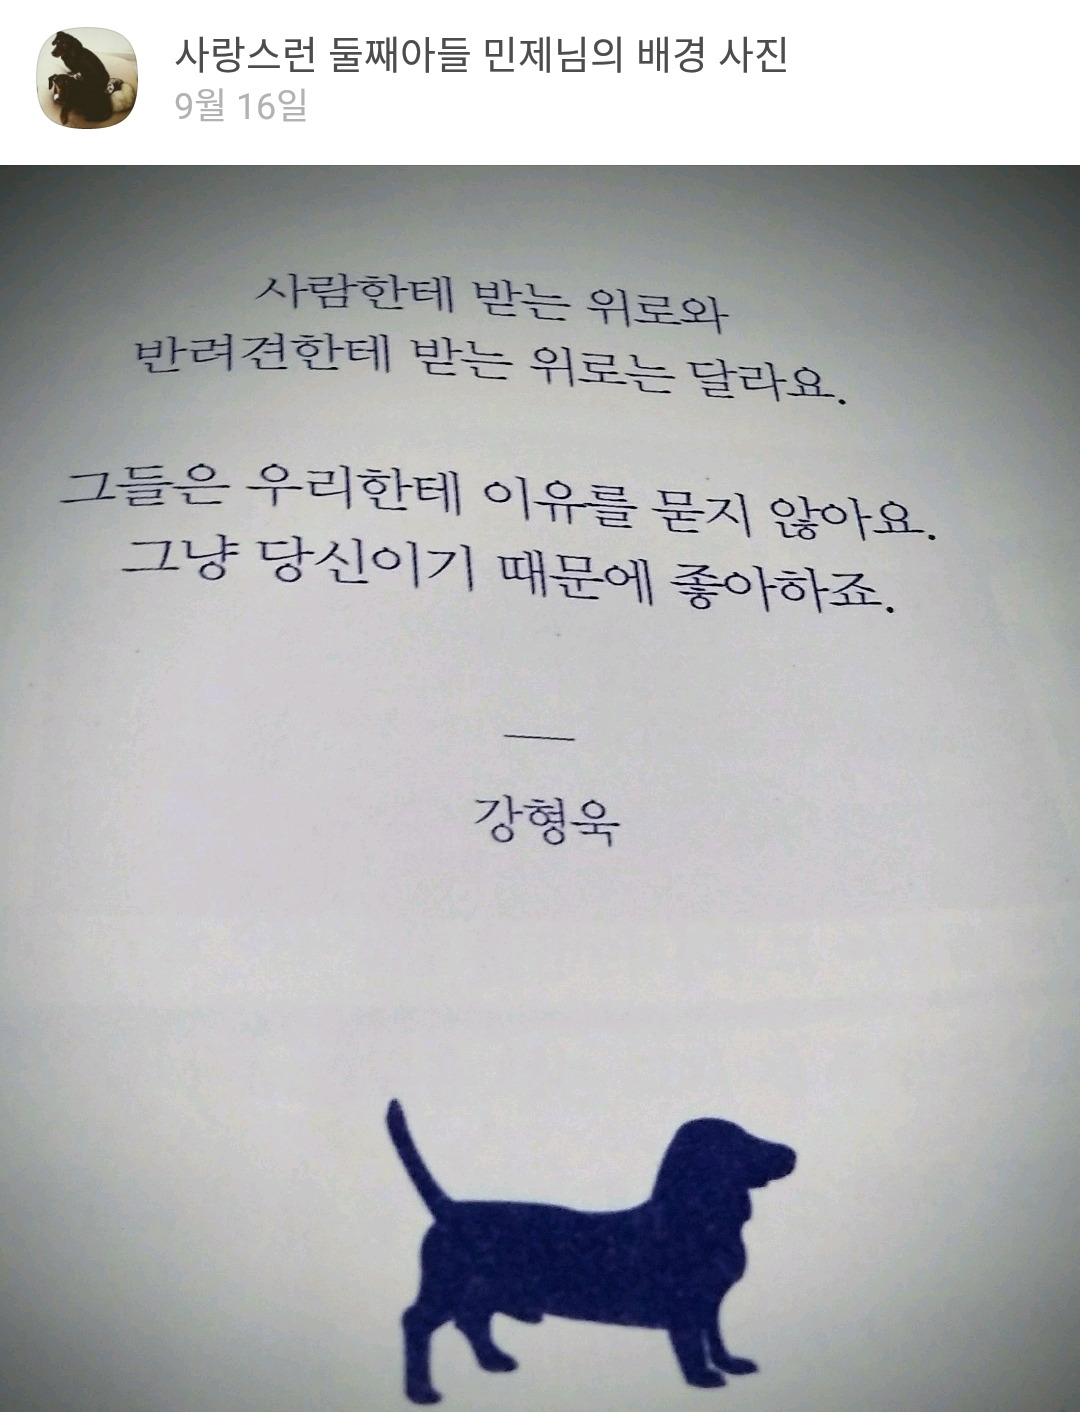 사랑스런 둘째아들 민제님의 배경 사진
9월 16일
사람한테 받는 위로와
반려견한테 받는 위로는 달라요.
그들은 우리한테 이유를 묻지 않아요.
그냥 당신이기 때문에 좋아하죠.
강형욱